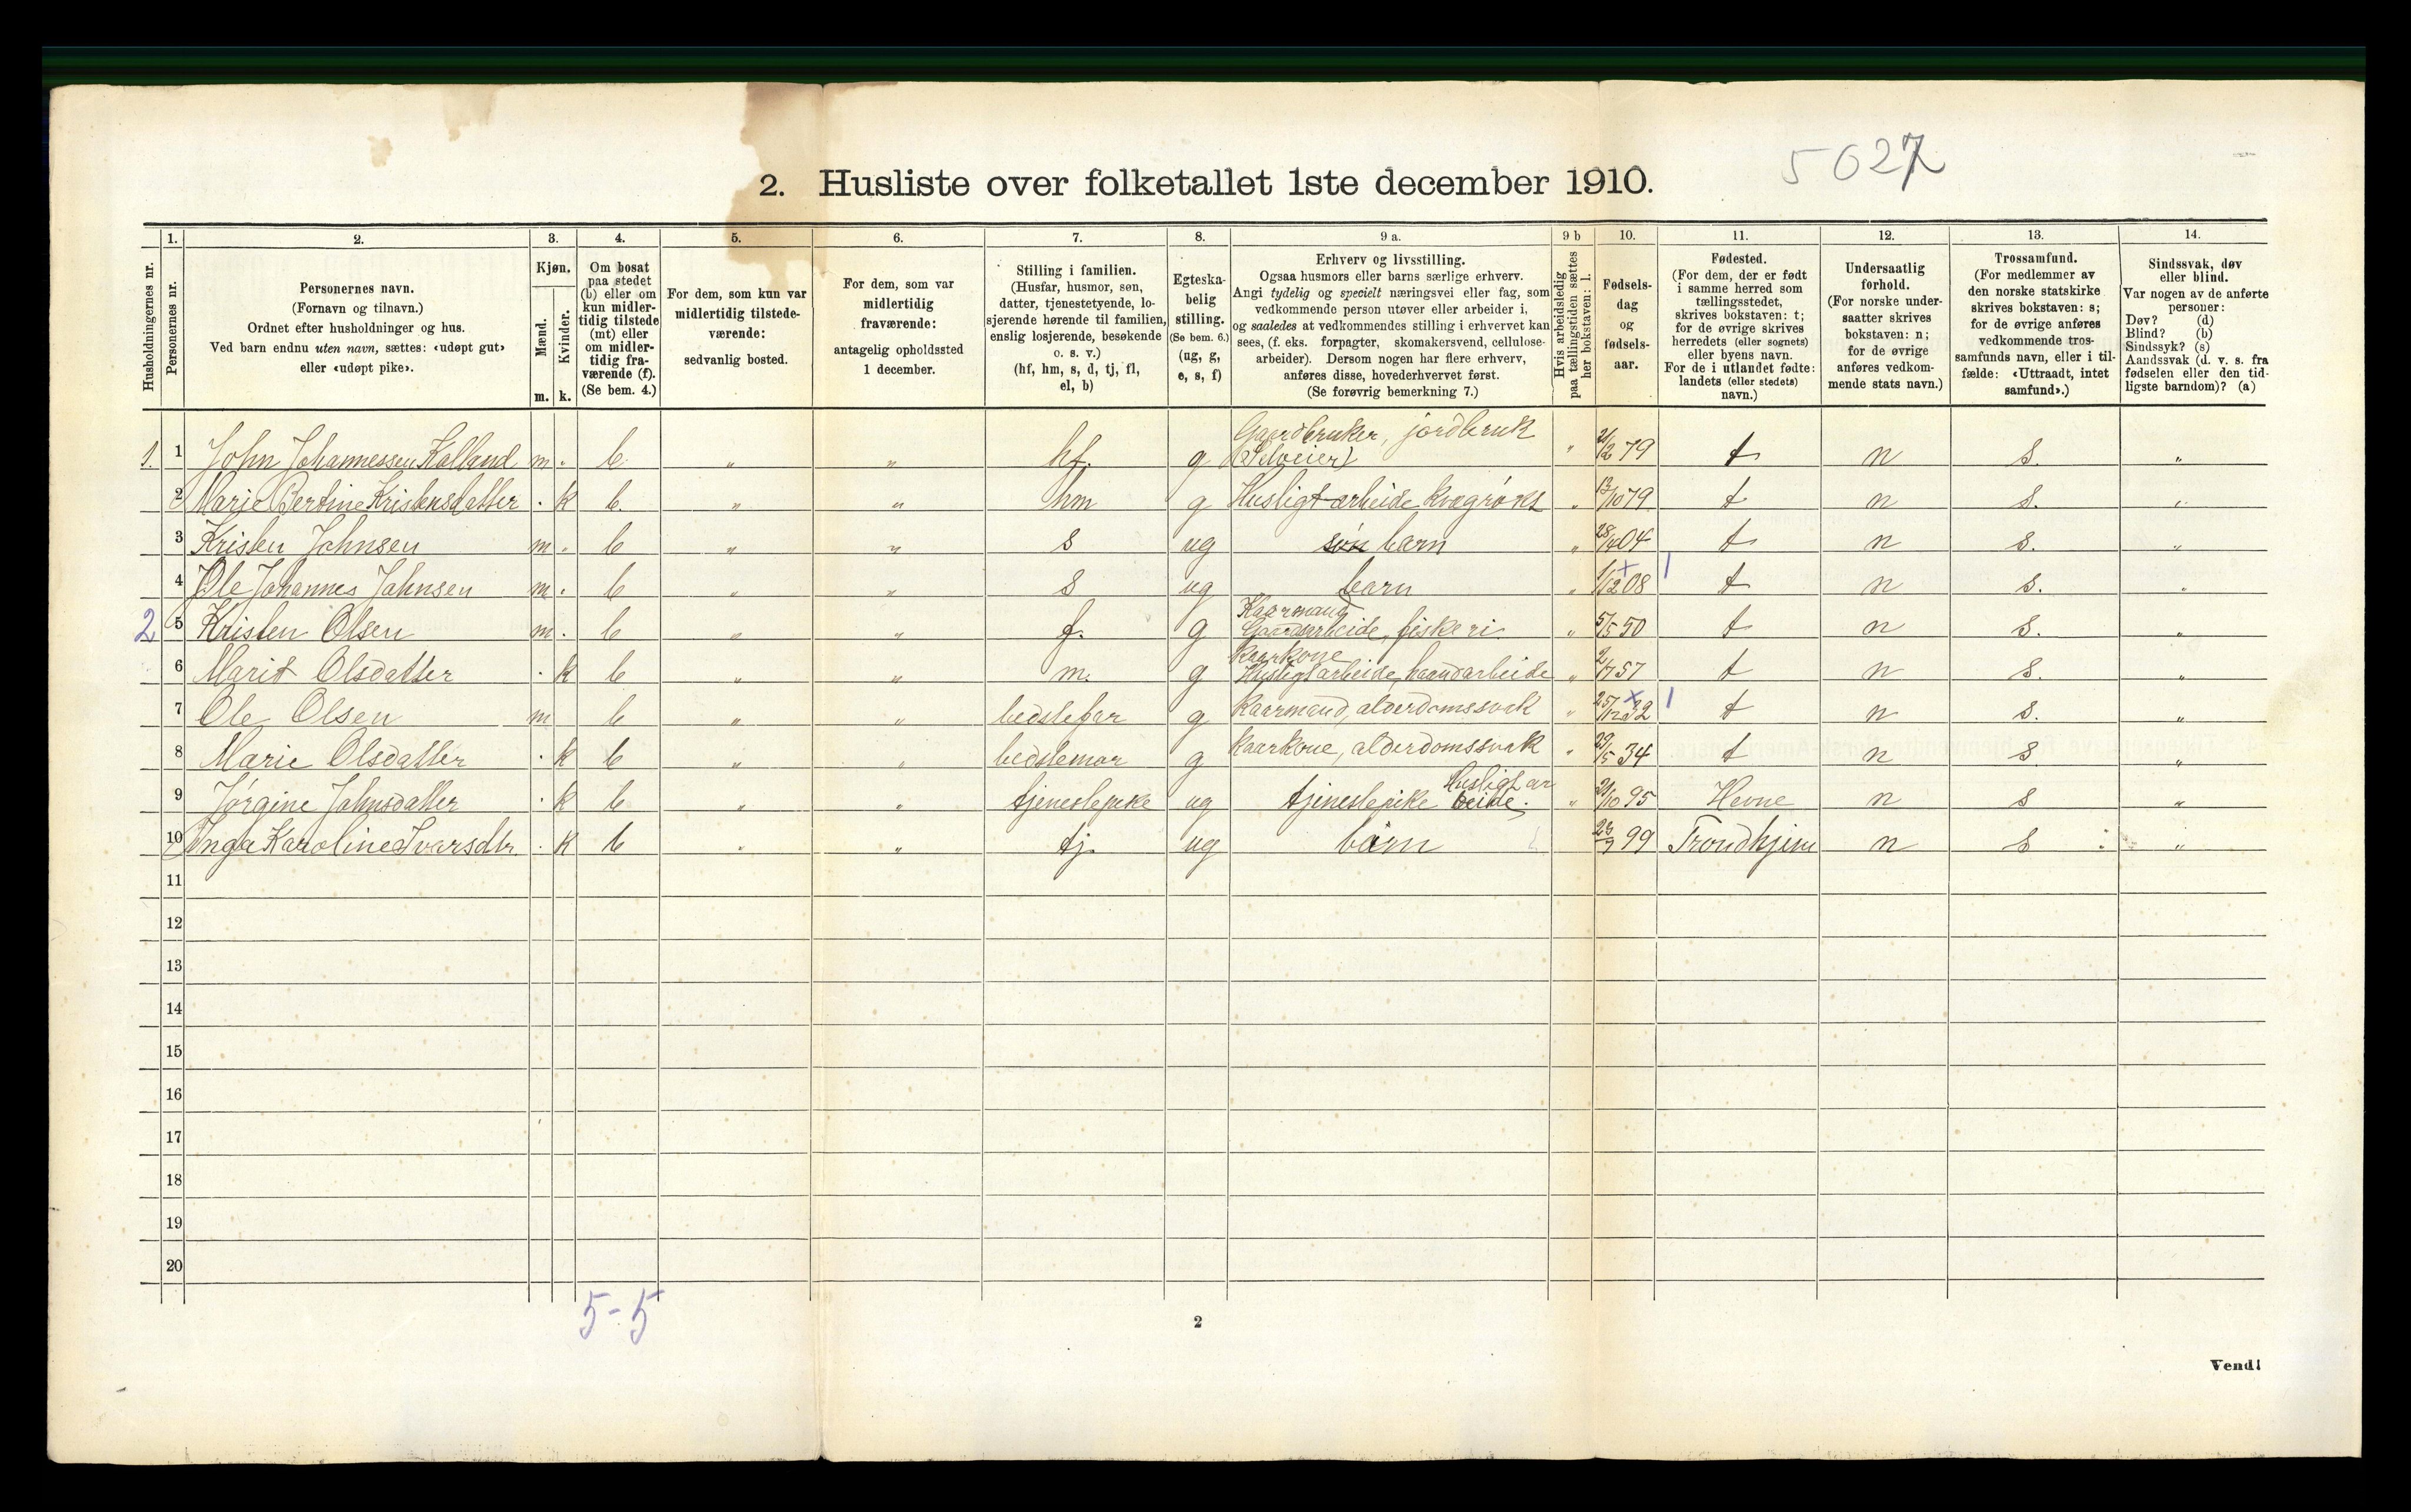 5027
2. Husliste over folketallet 1ste december 1910.
Husholdningernes nr.
1.
Personernes nr.
2.
Personernes navn.
(Fornavn og tilnavn.)
Ordnet efter husholdninger og hus.
Ved barn endnu uten navn, sættes: «udøpt gut»
eller «udøpt pike».
3.
Kjøn.
Mænd. Kvinder.
m. k.
4.
Om bosat
paa stedet
(b) eller om
kun midler-
tidig tilstede
(mt) eller
om midler-
tidig fra-
værende (f).
(Se bem. 4.)
5.
For dem, som kun var
midlertidig tilstede-
værende:
sedvanlig bosted.
6.
For dem, som var
midlertidig
fraværende:
antagelig opholdssted
1 december.
7.
Stilling i familien.
(Husfar, husmor, søn,
datter, tjenestetyende, lo-
sjerende hørende til familien,
enslig losjerende, besøkende
o. s. v.)
(hf, hm, s, d, tj, fl,
el, b)
8.
Egteska-
belig
stilling.
(Se bem. 6.)
(ug, g,
e, s, f)
9 a.
Erhverv og livsstilling.
Ogsaa husmors eller barns særlige erhverv.
Angi tydelig og specielt næringsvei eller fag, som
vedkommende person utøver eller arbeider i,
og saaledes at vedkommendes stilling i erhvervet kan
sees, (f. eks. forpagter, skomakersvend, cellulose-
arbeider). Dersom nogen har flere erhverv,
anføres disse, hovederhvervet først.
(Se forøvrig bemerkning 7.)
9 b
Hvis arbeidsledig
paa tællingstiden sættes
her bokstaven: l.
10.
Fødsels-
dag
og
fødsels-
aar.
11.
Fødested.
(For dem, der er født
i samme herred som
tællingsstedet,
skrives bokstaven: t;
for de øvrige skrives
herredets (eller sognets)
eller byens navn.
For de i utlandet fødte:
landets (eller stedets)
navn.)
12.
Undersaatlig
forhold.
(For norske under-
saatter skrives
bokstaven: n;
for de øvrige
anføres vedkom-
mende stats navn.)
13.
Trossamfund.
(For medlemmer av
den norske statskirke
skrives bokstaven: s;
for de øvrige anføres
vedkommende tros-
samfunds navn, eller i til-
fælde: «Uttraadt, intet
samfund».)
14.
Sindssvak, døv
eller blind.
Var nogen av de anførte
personer:
Døv? (d)
Blind? (b)
Sindssyk? (s)
Aandssvak (d. v. s. fra
fødselen eller den tid-
ligste barndom)? (a)
1. 1 John Johannessen Kalland m. b. " " hf. g Gaardbruker, jordbruk (Selveier) " 21/2 79 t n s. "
2 Marie Bertine Kristensdatter . k b. " " hm g Husligt arbeide kvægrøkt " 13/10 79 t n s. "
3 Kristen Johnsen m . b " " s ug søn barn " 28/4 04 t n s. "
4 Ole Johannes Johnsen m . b " " s ug barn " 1/12 08 t n s. "
2 5 Kristen Olsen m . b " " f. g Kaarmand Gaardsarbeide, fiskeri " 5/5 50 t n s. "
6 Marit Olsdatter . k b " " m. g Kaarkone Husligt arbeide, haandarbeide " 2/7 57 t n s. "
7 Ole Olsen m b " " bedstefar g Kaarmand, alderdomssvak " 25/12 32 t n s. "
8 Marie Olsdatter . k b " " bedstemor g Kaarkone, alderdomssvak " 29/5 34 t n s. "
9 Jørgine Johnsdatter . k b " " tjenestepike ug tjenestepike Husligt arbeide. " 21/10 95 Hevne n s "
10 Inga Karoline Ivarsdtr . k b " " tj. ug barn 23/7 99 Trondhjem n s "
11
12
13
14
15
16
17
18
19
20
5-5
2
Vend!